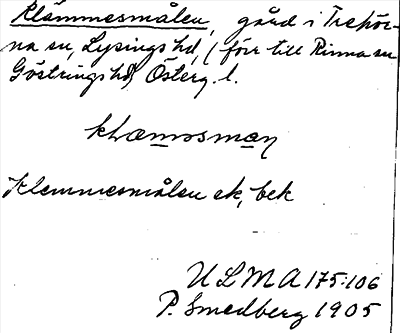 Klämmesmålen, gård i Trehör-
na sn, Lysings hd, (förr till Rinna sn
Göstrings hd) Österg. l.
Klemmesmålen ek, bek
ULMA 175:106
P. Smedberg 1905